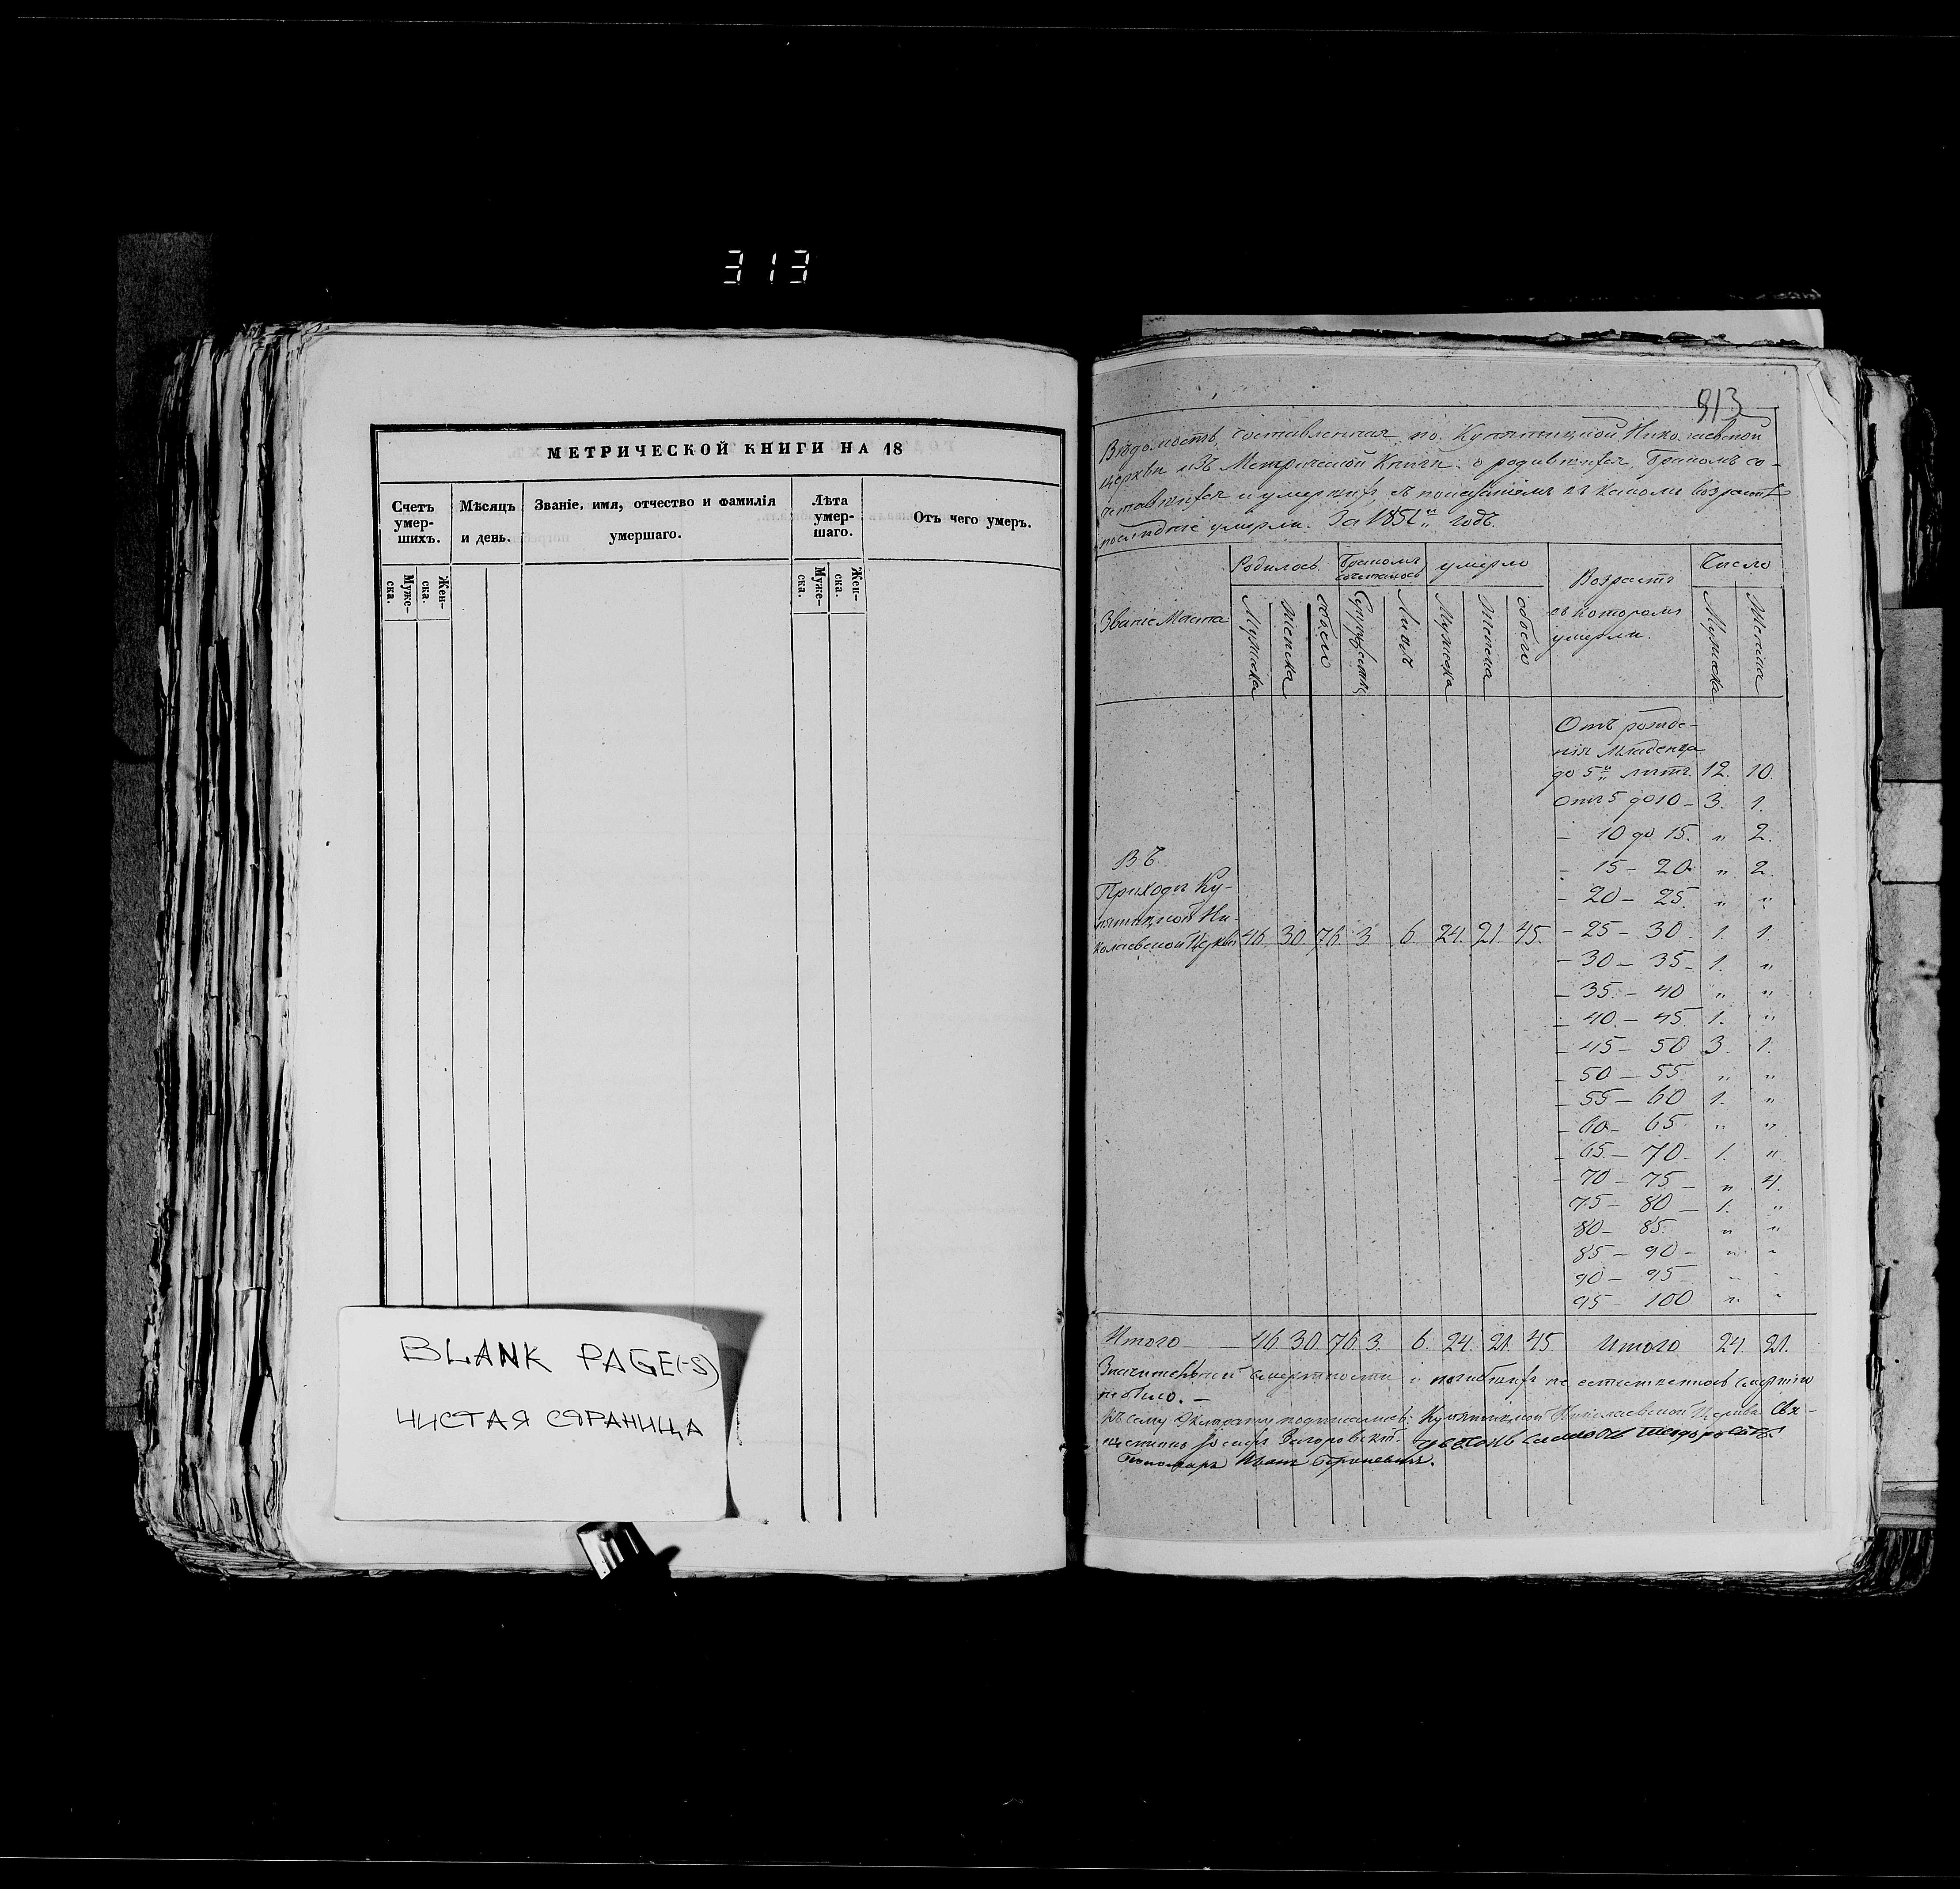 313
МЕТРИЧЕСКОЙ КНИГИ НА 18
Счетъ умер-шихъ.
Мѣсяцъ и день.
Званіе, имя, отчество и фамилія умершаго.
Лѣта умер-шаго.
Отъ чего умеръ.
Муже-ска.
Жен-ска.
Муже-ска.
Жен-ска.
BLANK PAGE(-S)
ЧИСТАЯ СТРАНИЦА
913
Вѣдомость составленная по Купятицкой Николаевской
церкви изъ Метрической Книги о родившихся Бракомъ со-
четавшихся и умершихъ, съ показаніемъ въ какомъ возрастѣ
послѣдніе умерли. За 1851й годъ.
Званіе Мѣста
Родилось
Бракомъ сочеталось
умерло
Возрастъ въ которомъ умерли.
Число
Мужеска
Женска
обоего
Супружествъ
Лицъ
Мужеска
Женска
обоего
Мужеска
Женска
Отъ рожде-
нія Младенца
до 5и лѣтъ. 12. 10.
Отъ 5 до 10 – 3. 1.
– 10 до 15. " 2.
– 15 – 20 " 2.
– 20 – 25. " "
Въ
Приходѣ Ку-
пятицкой Ни-
колаевской Церкви 46. 30. 76. 3. 6. 24. 21. 45.
– 25 – 30. 1. 1.
– 30 – 35 – 1. "
– 35. – 40 " "
– 40. – 45. 1. "
– 45 – 50 3. 1.
– 50 – 55 " "
– 55 – 60 1. "
– 60 – 65 " "
– 65. – 70. 1. "
– 70 – 75 – " 4.
75 – 80 – 1. "
80 – 85. " "
85 – 90 – " "
90 – 95 – " "
95 – 100 " "
Итого 46. 30. 76. 3. 6. 24. 21. 45. Итого 24. 21.
Значительной смертности и погибшихъ не естественною смертію
не было. –
Къ сему Экстракту подписались: Купятицкой Николаевской Церкви Свя-
щенникъ Іосифъ Загоровскій.
Пономарь Иванъ